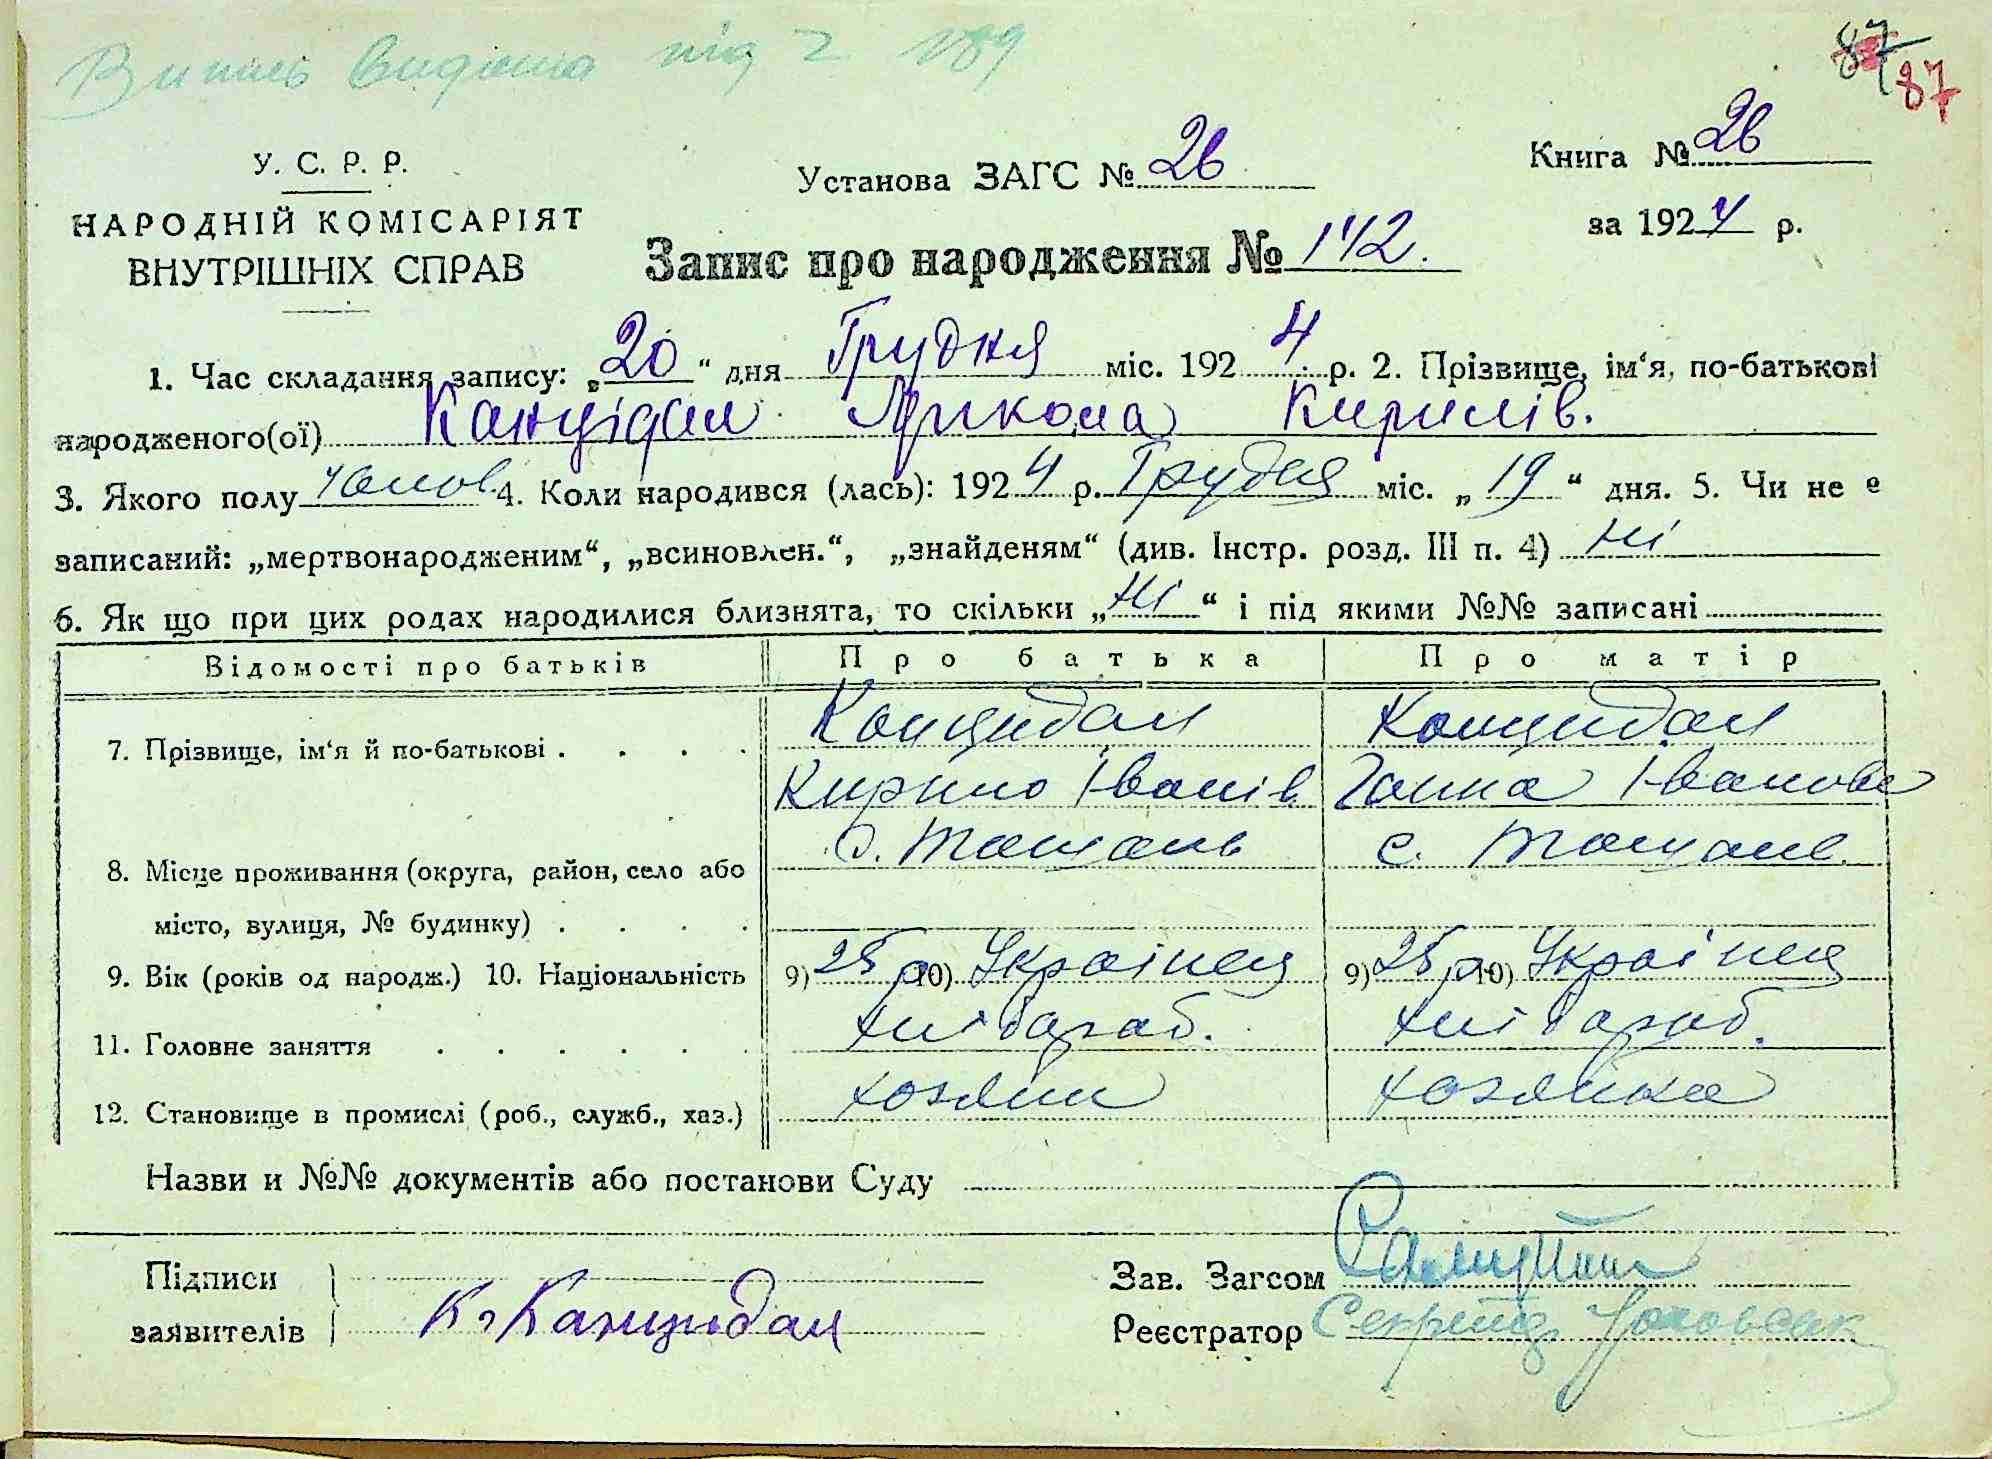 Випись видана під 2 189
87 87
У. С. Р. Р.
НАРОДНІЙ КОМІСАРІЯТ
ВНУТРІШНІХ СПРАВ
Установа ЗАГС № 26
Книга № 26
за 1924 р.
Запис про народження № 142.
1. Час складання запису: „20“ дня Грудня міс. 1924 р. 2. Прізвище, ім‘я, по-батькові
народженого(ої) Канцідал Микола Кирилів.
3. Якого полу чолов. 4. Коли народився (лась): 1924 р. Грудня міс. „19“ дня. 5. Чи не є
записаний: „мертвонародженим“, „всиновлен.“, „знайденям“ (див. Інстр. розд. III п. 4) Ні
6. Як що при цих родах народилися близнята, то скільки „Ні“ і під якими №№ записані
Відомості про батьків Про батька Про матір
7. Прізвище, ім‘я й по-батькові . . . . Канцидал Канцидал
Кирило Іванів Ганна Іванова
8. Місце проживання (округа, район, село або с. Тащань с. Тащань
місто, вулиця, № будинку) . . . .
9. Вік (років од народж.) 10. Національність 9) 25 р 10) Українец 9) 25 р 10) Українец
11. Головне заняття . . . . . . хлібароб. хлібароб.
12. Становище в промислі (роб., служб., хаз.) хозяин хозяйка
Назви и №№ документів або постанови Суду
Підписи
заявителів К. Канцидал
Зав. Загсом
Реєстратор Секретар